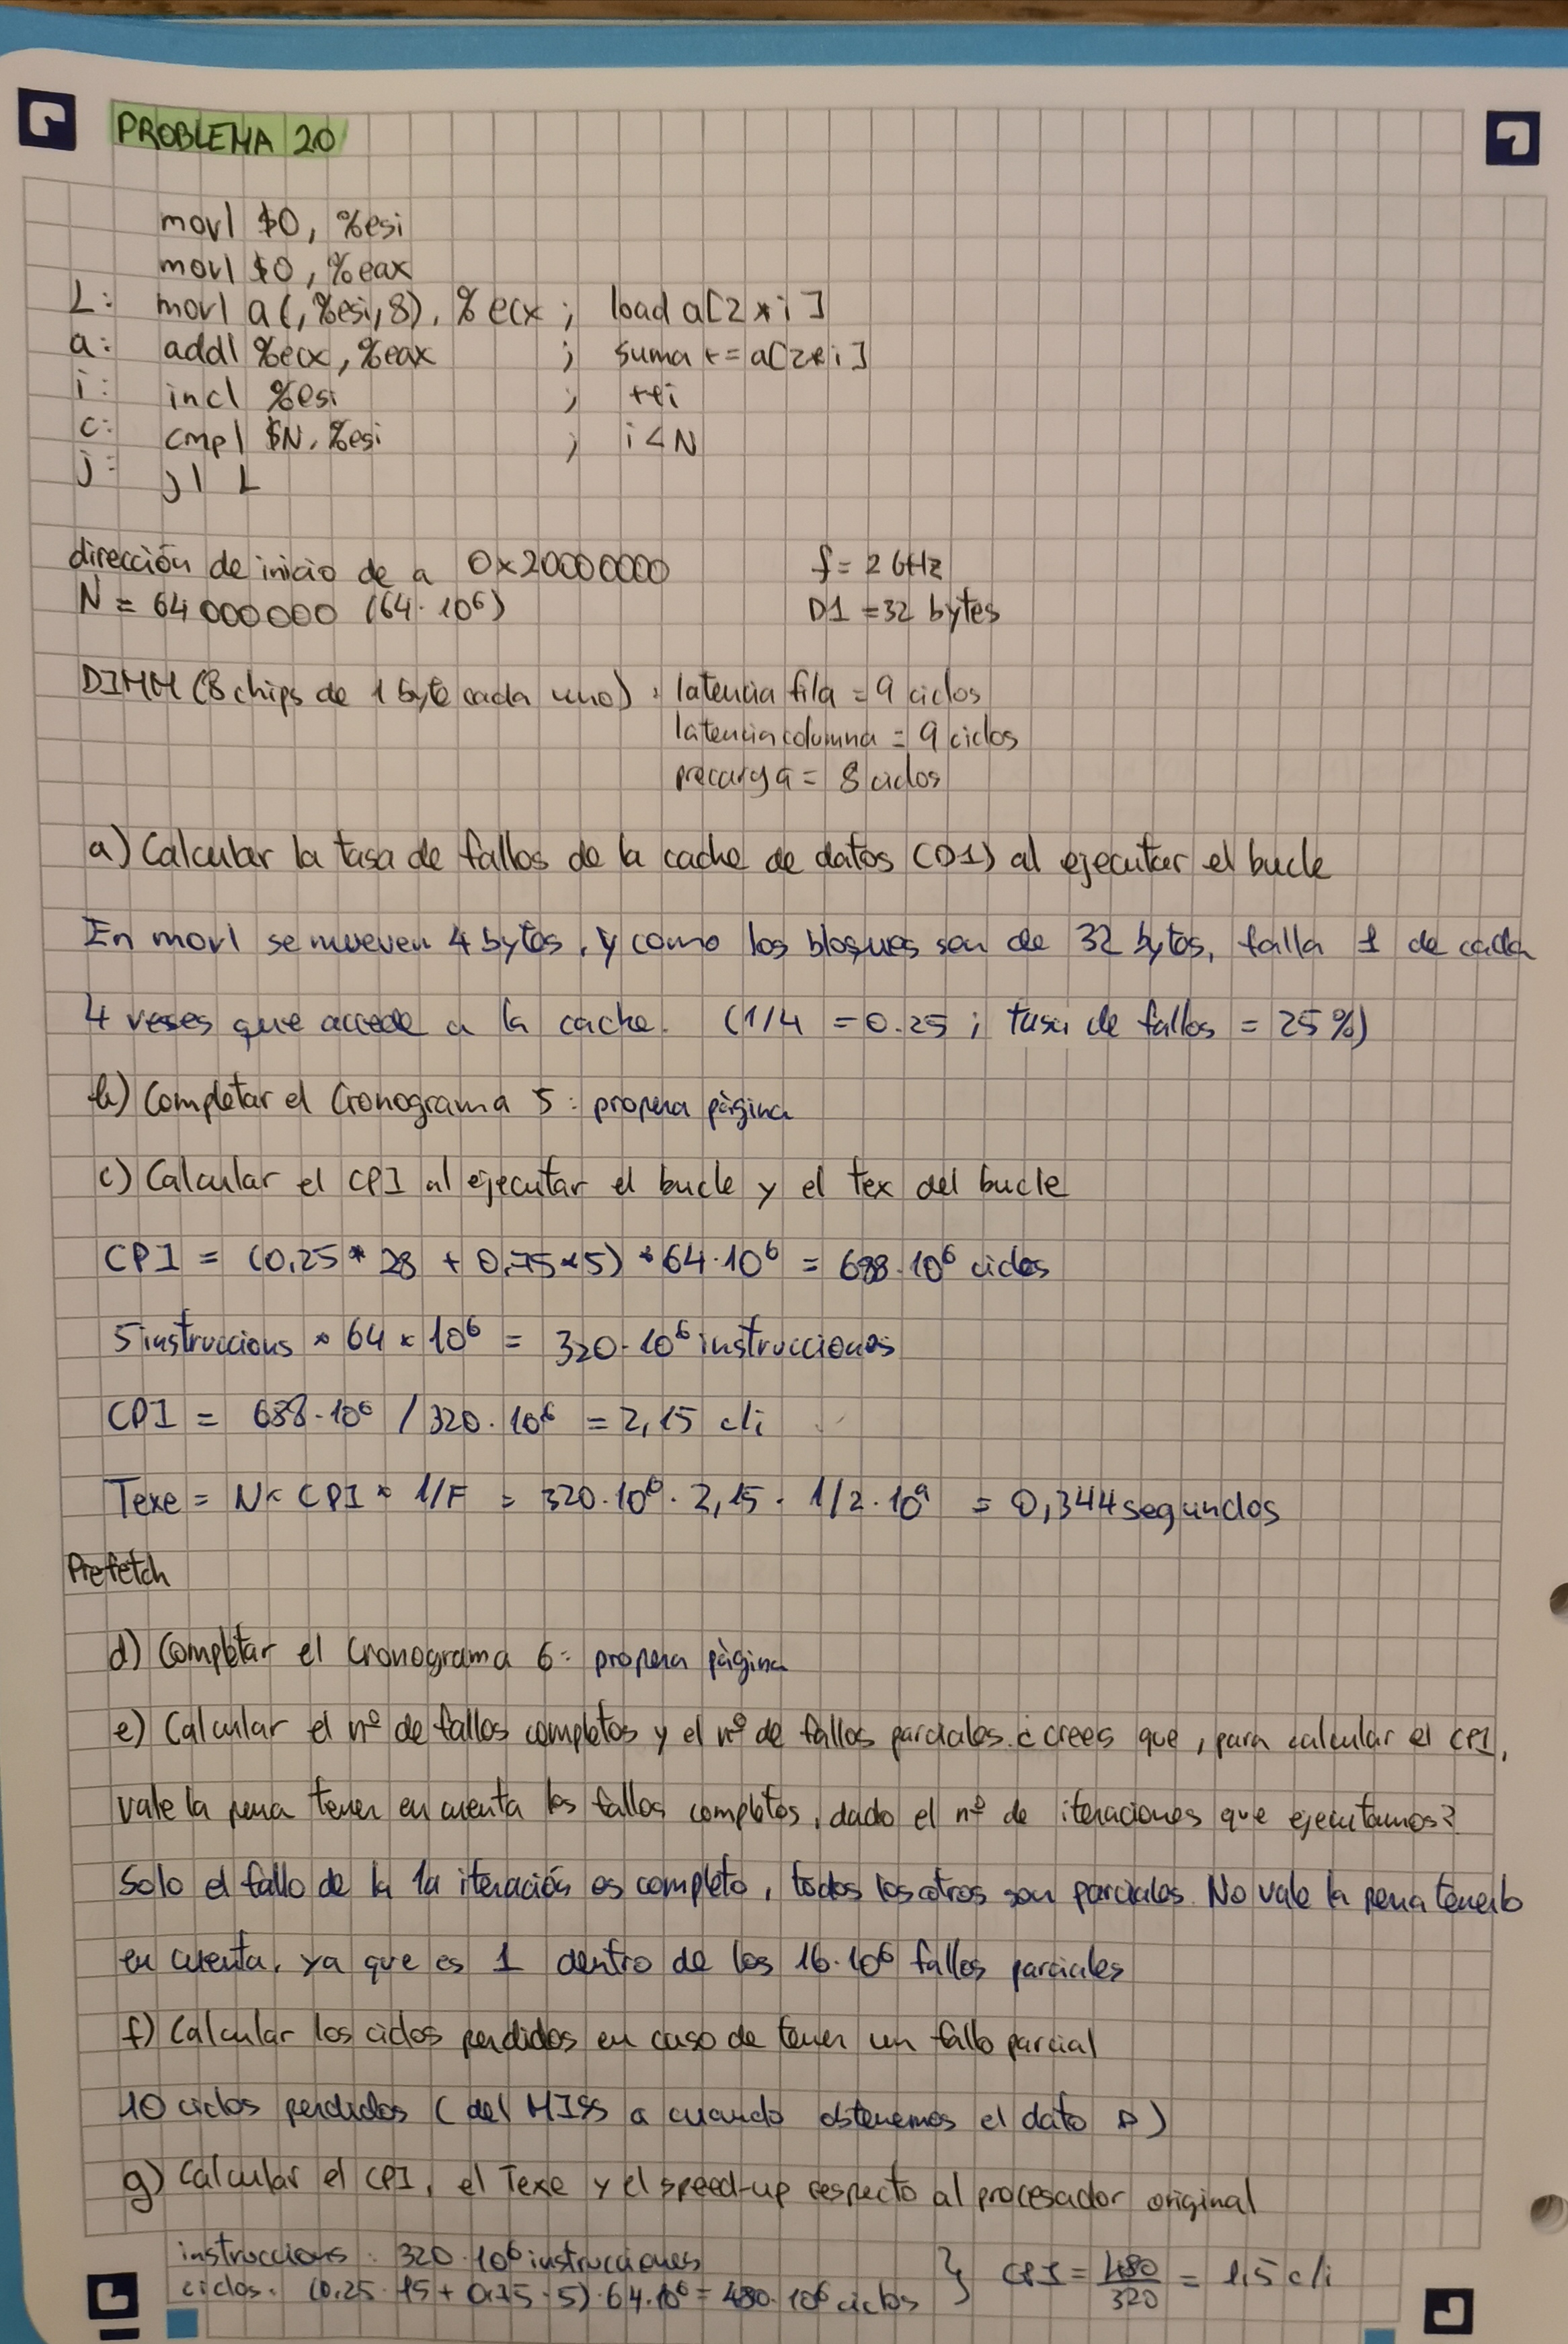 PROBLEMA 20
movl $0, %esi
movl $0, %eax
L: movl a(,%esi,8), %ecx ; load a[2*i]
a: addl %ecx, %eax ; suma += a[2*i]
i: incl %esi ; ++i
c: cmpl $N, %esi ; i<N
j: jl L
dirección de inicio de a 0x20000000 f = 2 GHz
N = 64000000 (64·10⁶) D1 = 32 bytes
DIMM (8 chips de 1 byte cada uno): latencia fila = 9 ciclos
latencia columna = 9 ciclos
precarga = 8 ciclos
a) Calcular la tasa de fallos de la cache de datos (D1) al ejecutar el bucle
En movl se mueven 4 bytes, y como los bloques son de 32 bytes, falla 1 de cada
4 veses que accede a la cache. (1/4 = 0.25 ; tasa de fallos = 25%)
b) Completar el Cronograma 5: propera pàgina
c) Calcular el CPI al ejecutar el bucle y el tex del bucle
CPI = (0,25 * 28 + 0,75*5) * 64·10⁶ = 688·10⁶ ciclos
5 instruccions * 64 * 10⁶ = 320·10⁶ instrucciones
CPI = 688·10⁶ / 320·10⁶ = 2,15 c/i
Texe = N * CPI * 1/F = 320·10⁶ · 2,15 · 1/2·10⁹ = 0,344 segundos
Prefetch
d) Completar el Cronograma 6: propera pàgina
e) Calcular el nº de fallos completos y el nº de fallos parciales. ¿crees que, para calcular el CPI,
vale la pena tener en cuenta los fallos completos, dado el nº de iteraciones que ejecutamos?
Solo el fallo de la 1a iteración es completo, todos los otros son parciales. No vale la pena tenerlo
en cuenta, ya que es 1 dentro de los 16·10⁶ fallos parciales
f) Calcular los ciclos perdidos en caso de tener un fallo parcial
10 ciclos perdidos (del MISS a cuando obtenemos el dato D)
g) Calcular el CPI, el Texe y el speed-up respecto al procesador original
instruccions: 320·10⁶ instrucciones
ciclos: (0,25·15 + 0,75·5)·64·10⁶ = 480·10⁶ ciclos } CPI = 480/320 = 1,5 c/i